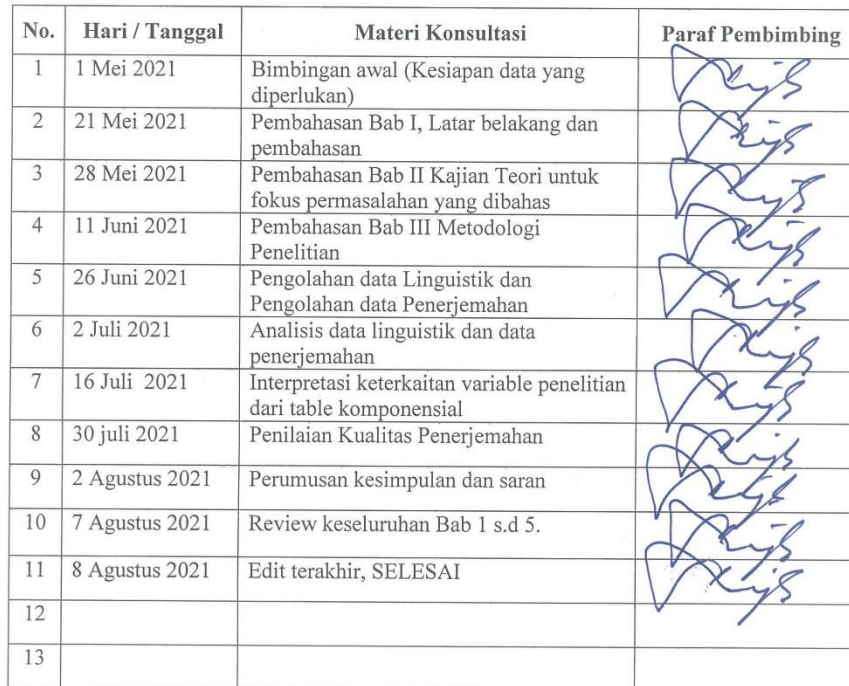 No. Hari / Tanggal Materi Konsultasi Paraf Pembimbing
1 1 Mei 2021 Bimbingan awal (Kesiapan data yang
diperlukan)
2 21 Mei 2021 Pembahasan Bab I, Latar belakang dan
pembahasan
3 28 Mei 2021 Pembahasan Bab II Kajian Teori untuk
fokus permasalahan yang dibahas
4 11 Juni 2021 Pembahasan Bab III Metodologi
Penelitian
5 26 Juni 2021 Pengolahan data Linguistik dan
Pengolahan data Penerjemahan
6 2 Juli 2021 Analisis data linguistik dan data
penerjemahan
7 16 Juli 2021 Interpretasi keterkaitan variable penelitian
dari table komponensial
8 30 juli 2021 Penilaian Kualitas Penerjemahan
9 2 Agustus 2021 Perumusan kesimpulan dan saran
10 7 Agustus 2021 Review keseluruhan Bab 1 s.d 5.
11 8 Agustus 2021 Edit terakhir, SELESAI
12
13